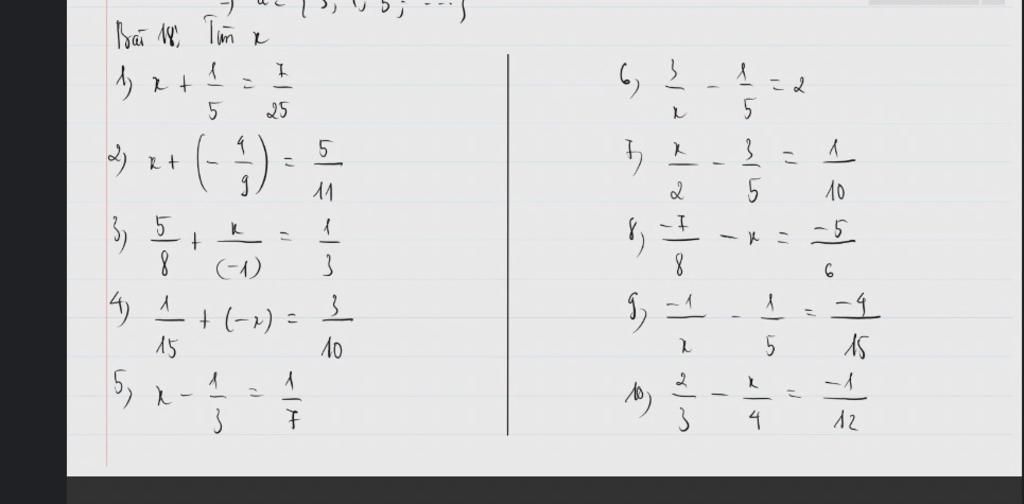 Bài 18, Tìm x
1) x + 1/5 = 7/25
2) x + (- 4/9) = 5/11
3) 5/8 + x/(-1) = 1/3
4) 1/15 + (-x) = 3/10
5) x - 1/3 = 1/7
6) 3/x - 1/5 = 2
7) x/2 - 3/5 = 1/10
8) -7/8 - x = -5/6
9) -1/x - 1/5 = -4/15
10) 2/3 - x/4 = -1/12